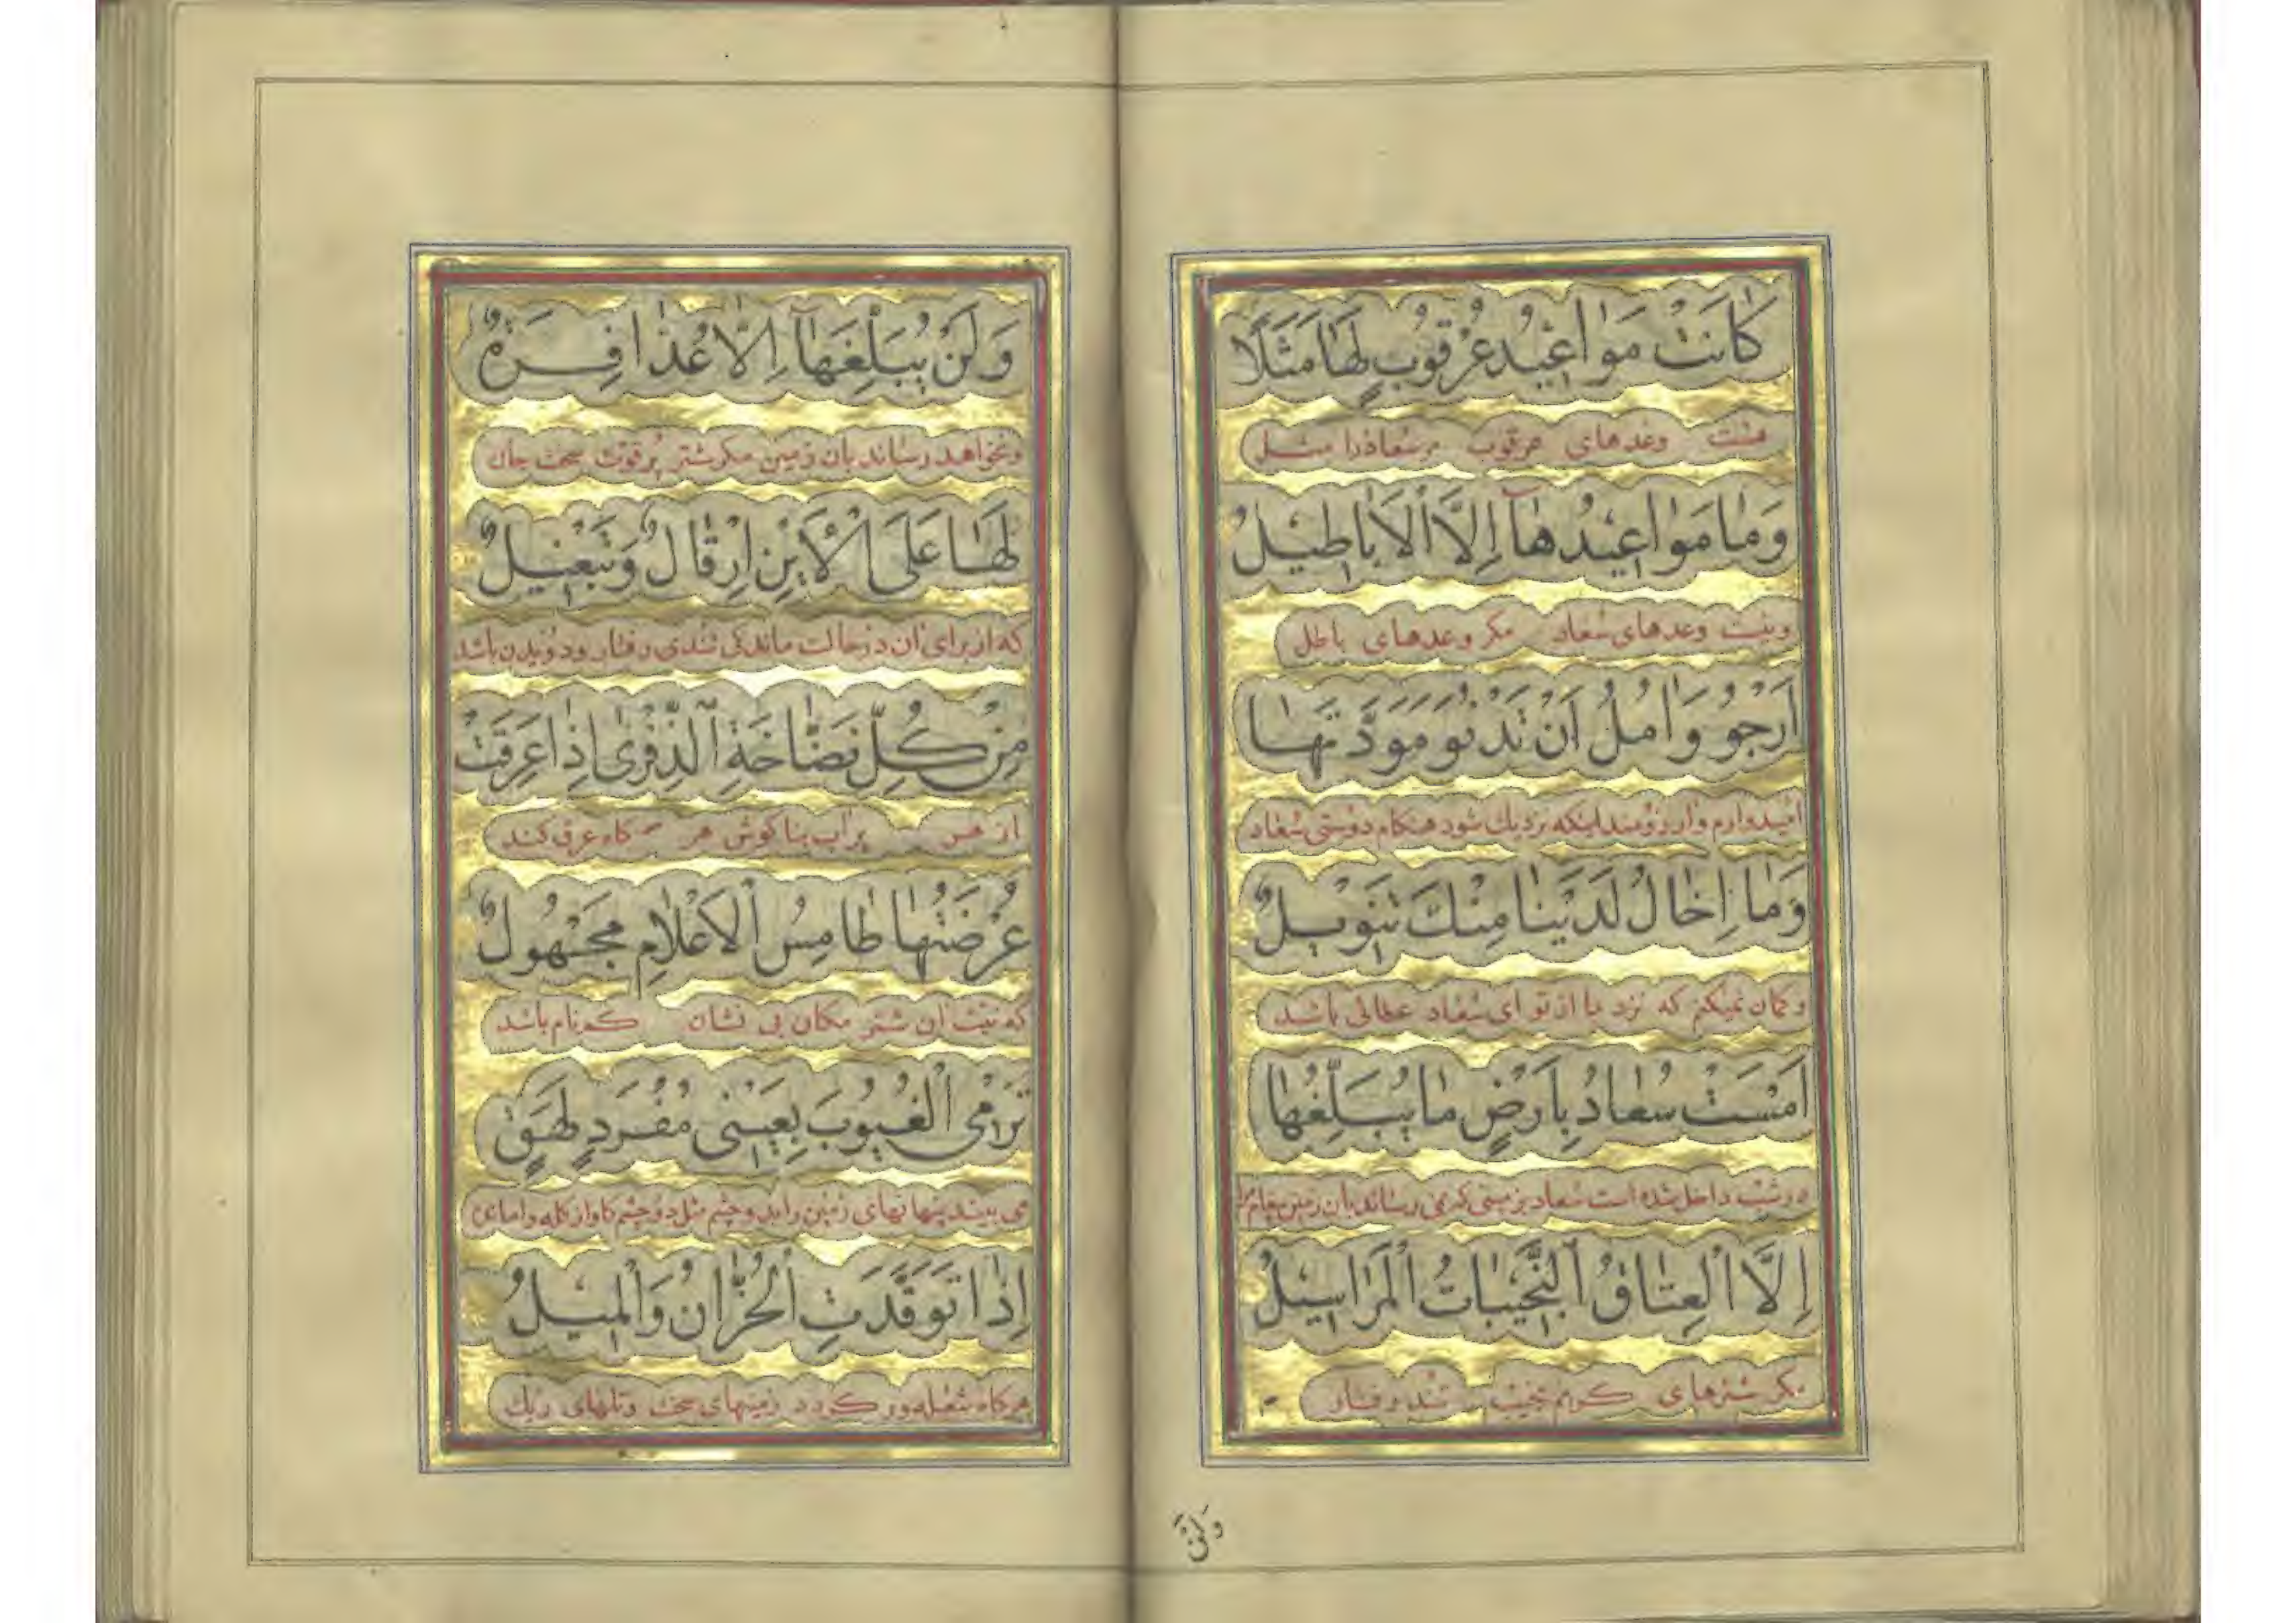 كَانَتْ مَوَاعِيدُ عُرْقُوبٍ لَهَا مَثَلًا
هست وعدهای عرقوب مر سعاد را مثل
وَمَا مَوَاعِيدُهَآ إِلَّا الْأَبَاطِيلُ
و نیست وعدهای سعاد مکر وعدهای باطل
اَرْجُو وَاٰمُلُ اَنْ تَدْنُو مَوَدَّتُهَا
امیدوارم و ارزومند اینکه نزدیك شود هنکام دوستی سعاد
وَمَا اِخَالُ لَدَيْنَا مِنْكَ تَنْوِيلُ
و کمان نمیکنم که نزد ما از تو ای سعاد عطائی باشد
اَمْسَتْ سُعَادُ بِاَرْضٍ مَا يُبَلِّغُهَا
در شب داخل شده است سعاد بزمینی که نمی رساند بان زمین
اِلَّا الْعِتَاقُ النَّجِيبَاتُ الْمَرَاسِيلُ
مکر شترهای کریم نجیب تند رفتار
وَلَنْ
وَلَنْ يُبَلِّغَهَآ اِلَّا عُذَافِرَةٌ
و نخواهد رساند بان زمین مکر شتر پر قوت سخت جان
لَهَا عَلَى الْأَيْنِ اِرْقَالٌ وَتَبْغِيلٌ
که از برای ان در حالت ماندکی تندی رفتار و دویدن باشد
مِنْ كُلِّ نَضَّاخَةِ الذِّفْرٰى اِذَا عَرِقَتْ
از هر پر اب بناکوش هر کاه عرق کند
عُرْضَتُهَا طَامِسُ الْاَعْلَامِ مَجْهُولٌ
که نیت ان شتر مکان بی نشان کم نام باشد
تَرْمِى الْغُيُوبَ بِعَيْنَى مُفْرَدٍ لَهَقٍ
می بیند پنهانهای زمین را بدو چشم مثل دو چشم کاو از کله وامانده
اِذَا تَوَقَّدَتِ الْحُزَّانُ وَالْمِيلُ
هرکاه شعله ور کردد زمینهای سخت و تلهای ریك